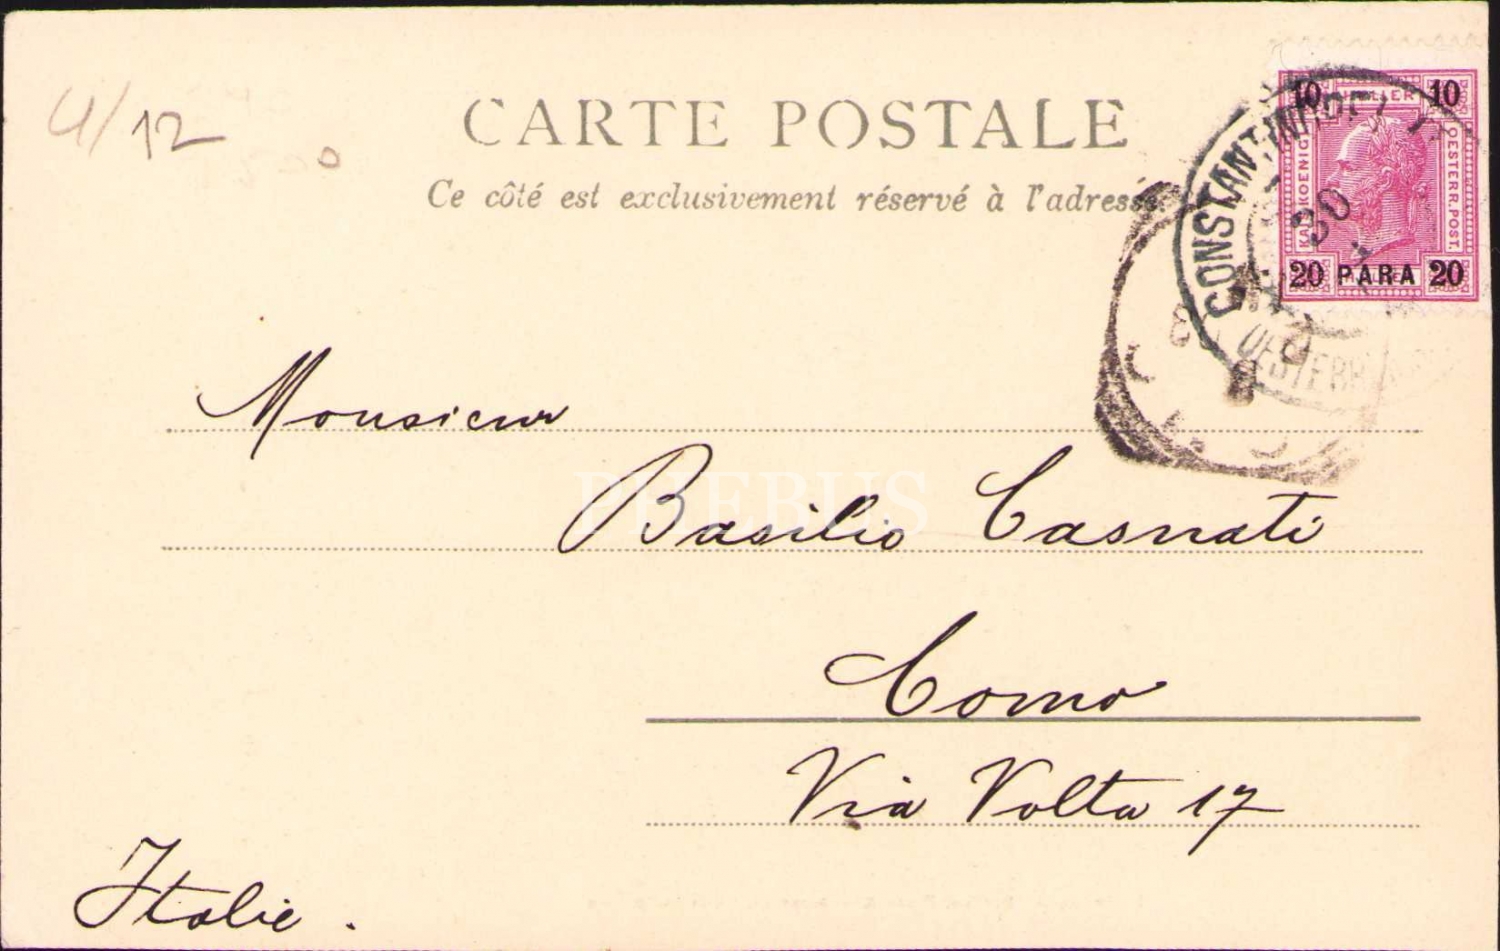 4/12
CARTE POSTALE
Ce côté est exclusivement réservé à l'adresse
10 HELLER 10
KAIS. KOENIGL.
OESTERR. POST.
20 PARA 20
CONSTANTINOPEL
30
OESTERR
Monsieur
Basilio Casnati
PHEBUS
Como
Via Volta 17
Italie.